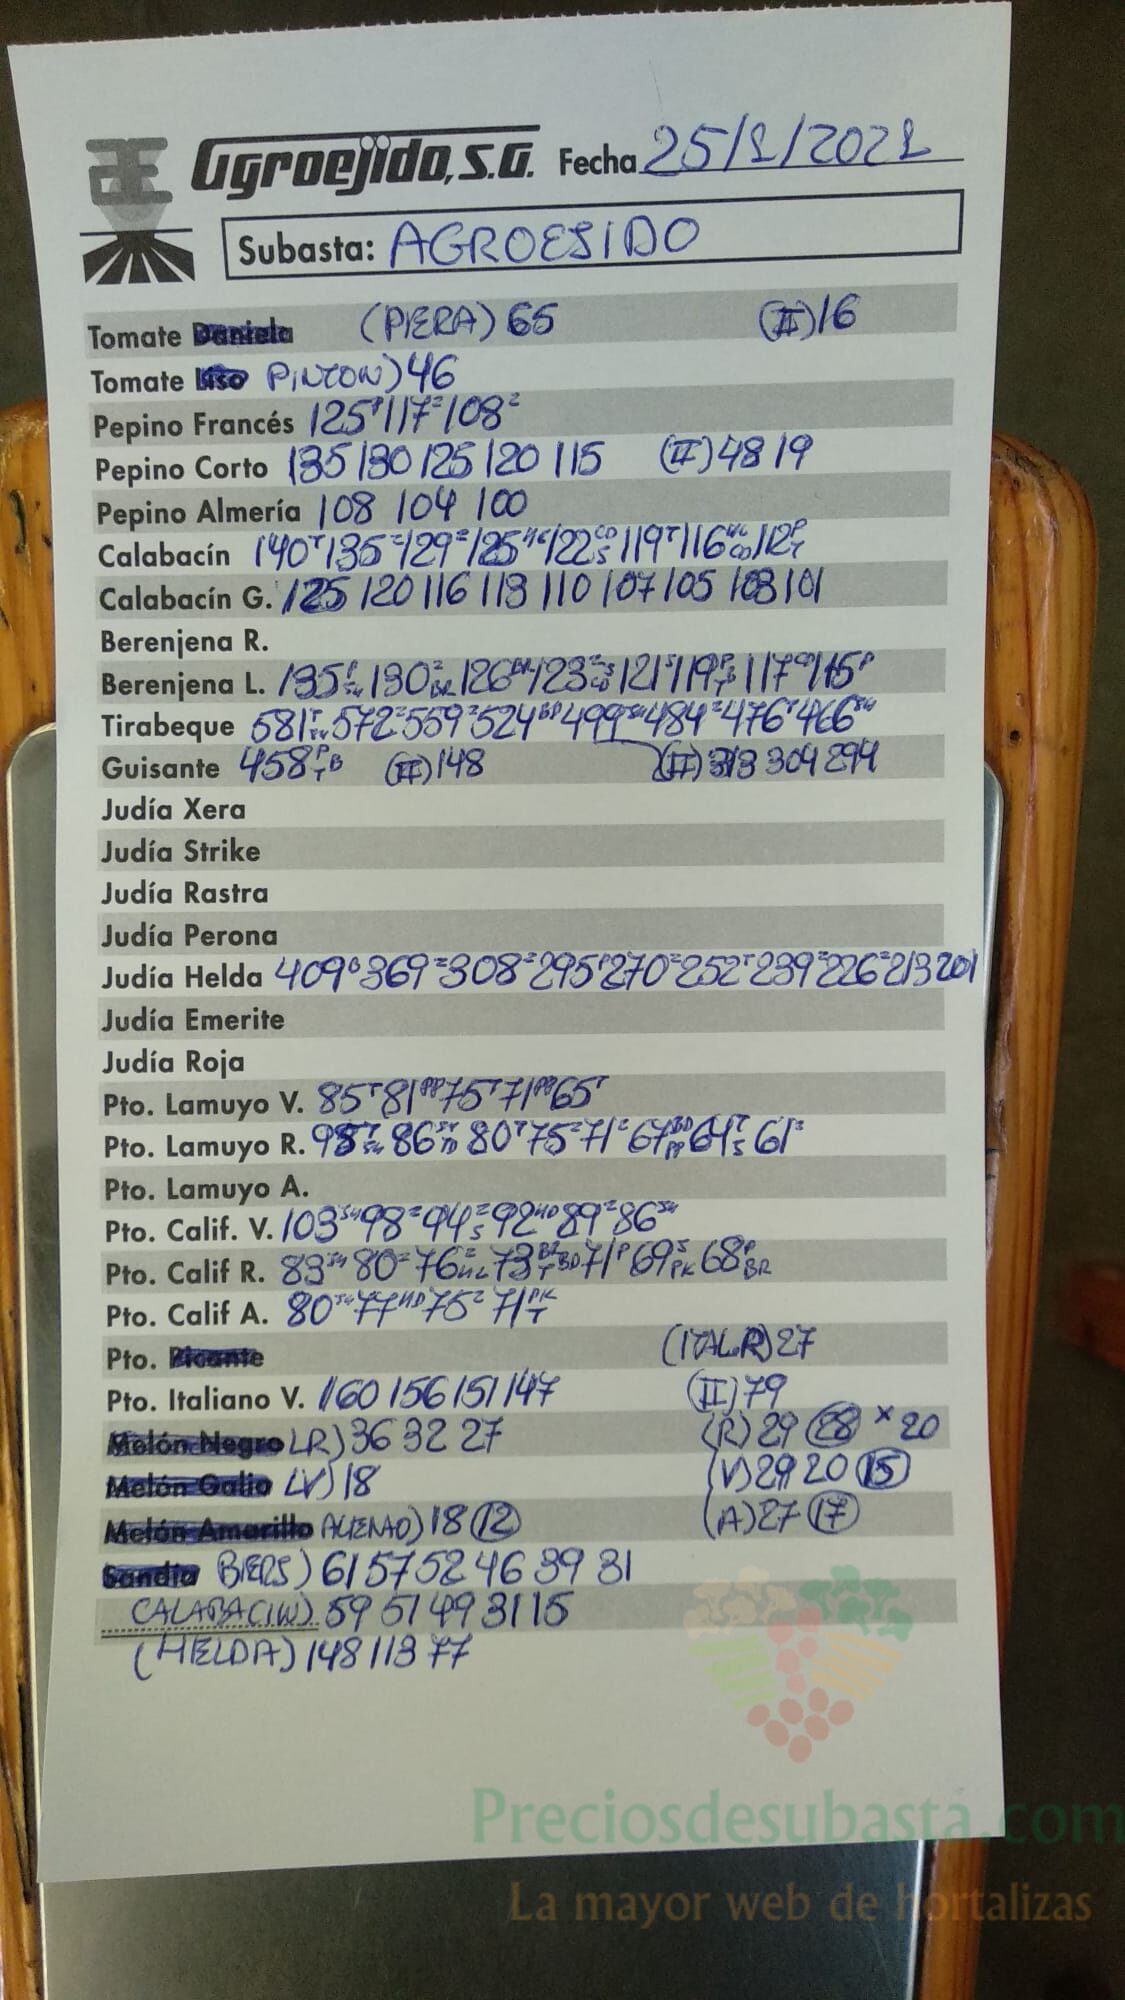 Agroejido, S.A. Fecha 25/1/2021
Subasta: AGROEJIDO
Tomate (PIERA) 65 (II) 16
Tomate PINTON) 46
Pepino Francés 125 117 108
Pepino Corto 135 130 125 120 115 (II) 48 19
Pepino Almería 108 104 100
Calabacín 140 135 129 125 122 119 116 112
Calabacín G. 125 120 116 113 110 107 105 103 101
Berenjena R.
Berenjena L. 135 130 126 123 121 119 117 115
Tirabeque 581 572 559 524 499 484 476 466
Guisante 458 (II) 148 (II) 313 304 294
Judía Xera
Judía Strike
Judía Rastra
Judía Perona
Judía Helda 409 369 308 295 270 252 239 226 213 201
Judía Emerite
Judía Roja
Pto. Lamuyo V. 85 81 75 71 65
Pto. Lamuyo R. 86 80 75 71 67 64 61
Pto. Lamuyo A.
Pto. Calif. V. 103 98 94 92 89 86
Pto. Calif R. 83 80 76 73 71 69 68
Pto. Calif A. 80 77 75 71
Pto. Picante (ITAL.R) 27
Pto. Italiano V. 160 156 151 147 (II) 79
Melón Negro LR) 36 32 27 (R) 29 28 x 20
Melón Galia LV) 18 (V) 29 20 15
Melón Amarillo ALIENAO) 18 12 (A) 27 17
Sandía BERS) 61 57 52 46 39 31
CALABACIN) 59 51 49 31 15
(HELDA) 148 113 77
Preciosdesubasta.com
La mayor web de hortalizas